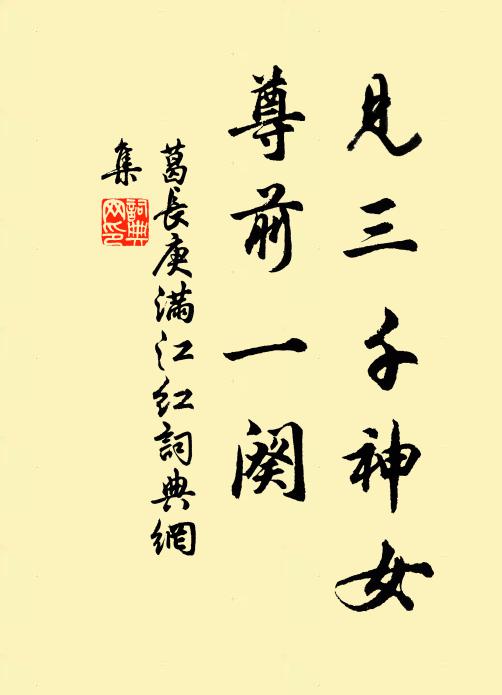 見三千神女
尊前一闋
葛長庚滿江紅詞典網
集
詞典网印